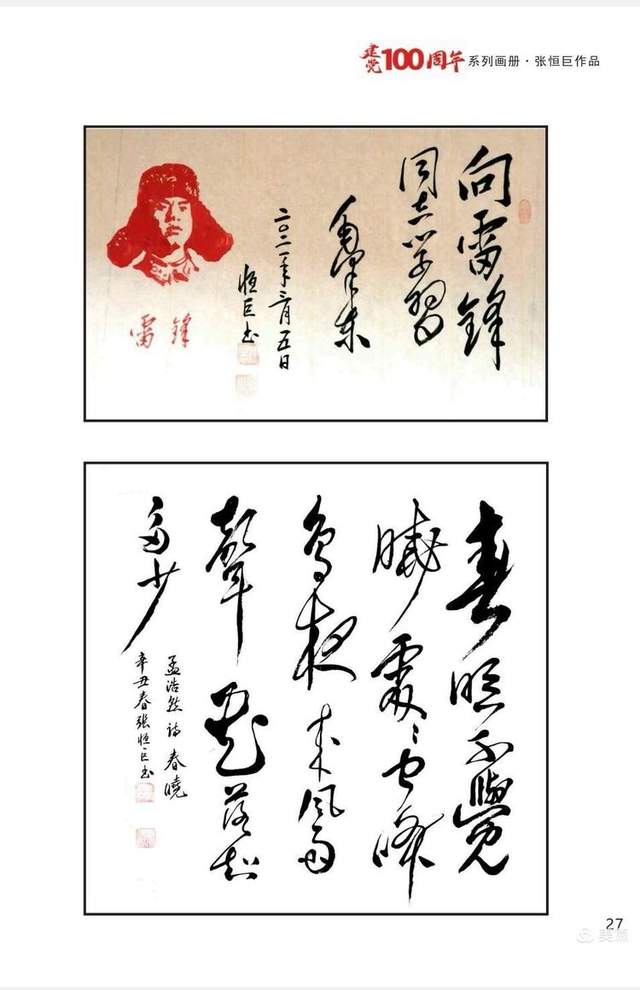 建党100周年系列画册·张恒巨作品
向雷锋
同志学習
毛泽东
二〇二一年三月五日
恒巨书
雷锋
春眠不覺
曉處〻闻啼
鸟夜来風雨
聲花落知
多少
孟浩然诗 春曉
辛丑春张恒巨书
27
美篇